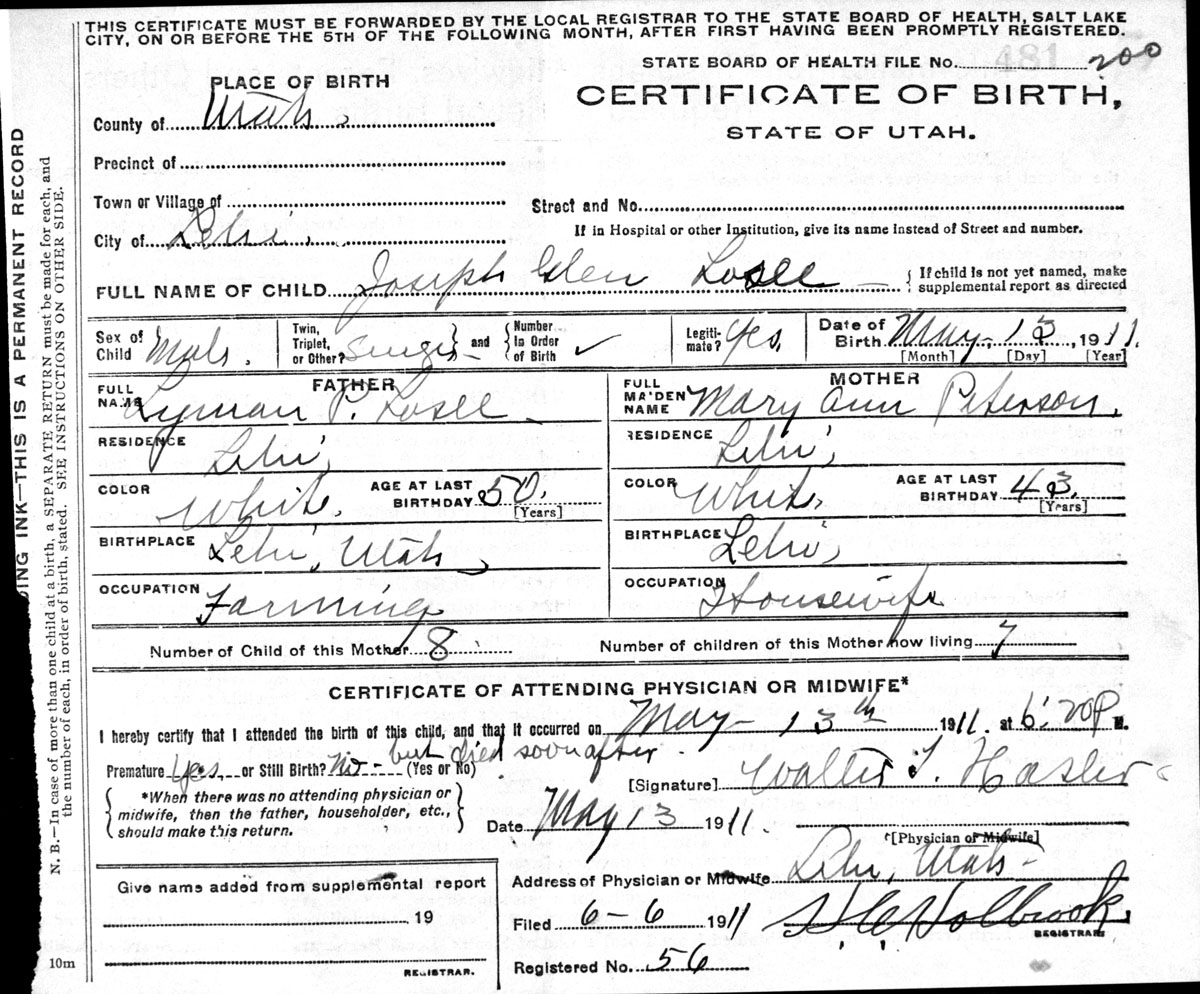 THIS CERTIFICATE MUST BE FORWARDED BY THE LOCAL REGISTRAR TO THE STATE BOARD OF HEALTH, SALT LAKE
CITY, ON OR BEFORE THE 5TH OF THE FOLLOWING MONTH, AFTER FIRST HAVING BEEN PROMPTLY REGISTERED.
STATE BOARD OF HEALTH FILE No. 481 200
PLACE OF BIRTH
CERTIFICATE OF BIRTH,
STATE OF UTAH.
County of Utah.
Precinct of
Town or Village of
Street and No.
City of Lehi.
If in Hospital or other Institution, give its name instead of Street and number.
FULL NAME OF CHILD Joseph Glen Losee
{ If child is not yet named, make
supplemental report as directed
Sex of Child Male.
Twin, Triplet, or Other? Single } and { Number In Order of Birth ✓
Legitimate? Yes,
Date of Birth May 13, 1911.
[Month] [Day] [Year]
FATHER
FULL NAME Lyman P. Losee
MOTHER
FULL MAIDEN NAME Mary Ann Peterson.
RESIDENCE Lehi,
RESIDENCE Lehi,
COLOR White. AGE AT LAST BIRTHDAY 50. [Years]
COLOR White, AGE AT LAST BIRTHDAY 43. [Years]
BIRTHPLACE Lehi, Utah
BIRTHPLACE Lehi,
OCCUPATION Farming
OCCUPATION Housewife
Number of Child of this Mother 8
Number of children of this Mother now living 7
CERTIFICATE OF ATTENDING PHYSICIAN OR MIDWIFE*
I hereby certify that I attended the birth of this child, and that it occurred on May 13th 1911. at 6:20 P M.
Premature Yes, or Still Birth? No - but died soon after. (Yes or No)
{ *When there was no attending physician or
midwife, then the father, householder, etc.,
should make this return. }
[Signature] Walter T. Hasler
Date May 13 1911.
[Physician or Midwife]
Give name added from supplemental report
19
REGISTRAR.
Address of Physician or Midwife Lehi, Utah
Filed 6-6 1911 Holbrook
REGISTRAR
Registered No. 56
10m
DING INK—THIS IS A PERMANENT RECORD
N. B.—In case of more than one child at a birth, a SEPARATE RETURN must be made for each, and
the number of each, in order of birth, stated. SEE INSTRUCTIONS ON OTHER SIDE.